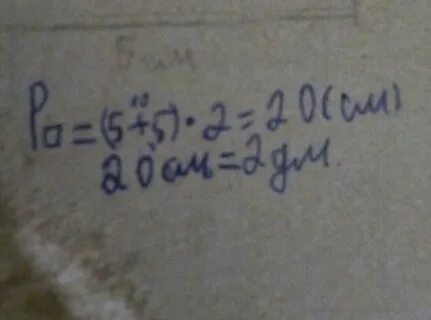 5 см
P□ = (5 + 5) · 2 = 20 (см)
20 см = 2 дм.